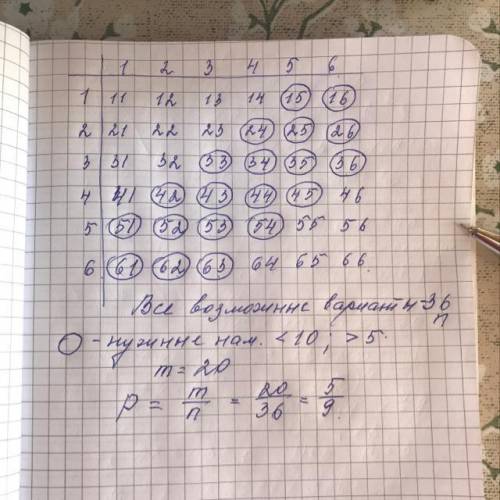 1 2 3 4 5 6
1 11 12 13 14 15 16
2 21 22 23 24 25 26
3 31 32 33 34 35 36
4 41 42 43 44 45 46
5 51 52 53 54 55 56
6 61 62 63 64 65 66
Все возможные варианты-36
n
- нужные нам. <10; >5.
m = 20
P = m/n = 20/36 = 5/9